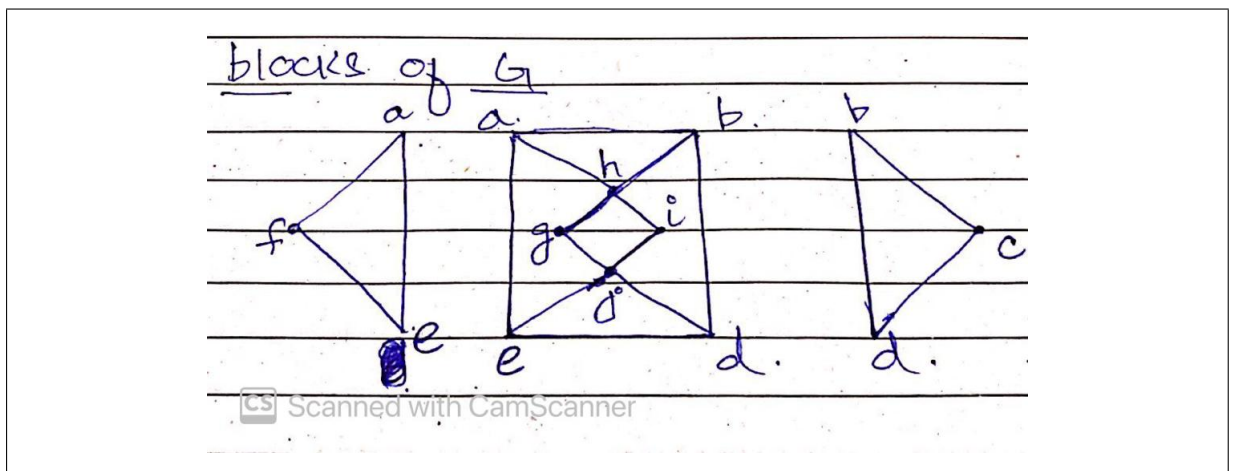 blocks of G
a a. b. b
h
f g i c
j
e e d. d.
CS Scanned with CamScanner